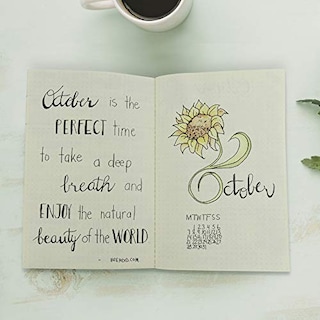 October is the
PERFECT time
to take a deep
breath and
ENJOY the natural
beauty of the WORLD
October
M T W T F S S
1 2 3 4 5 6